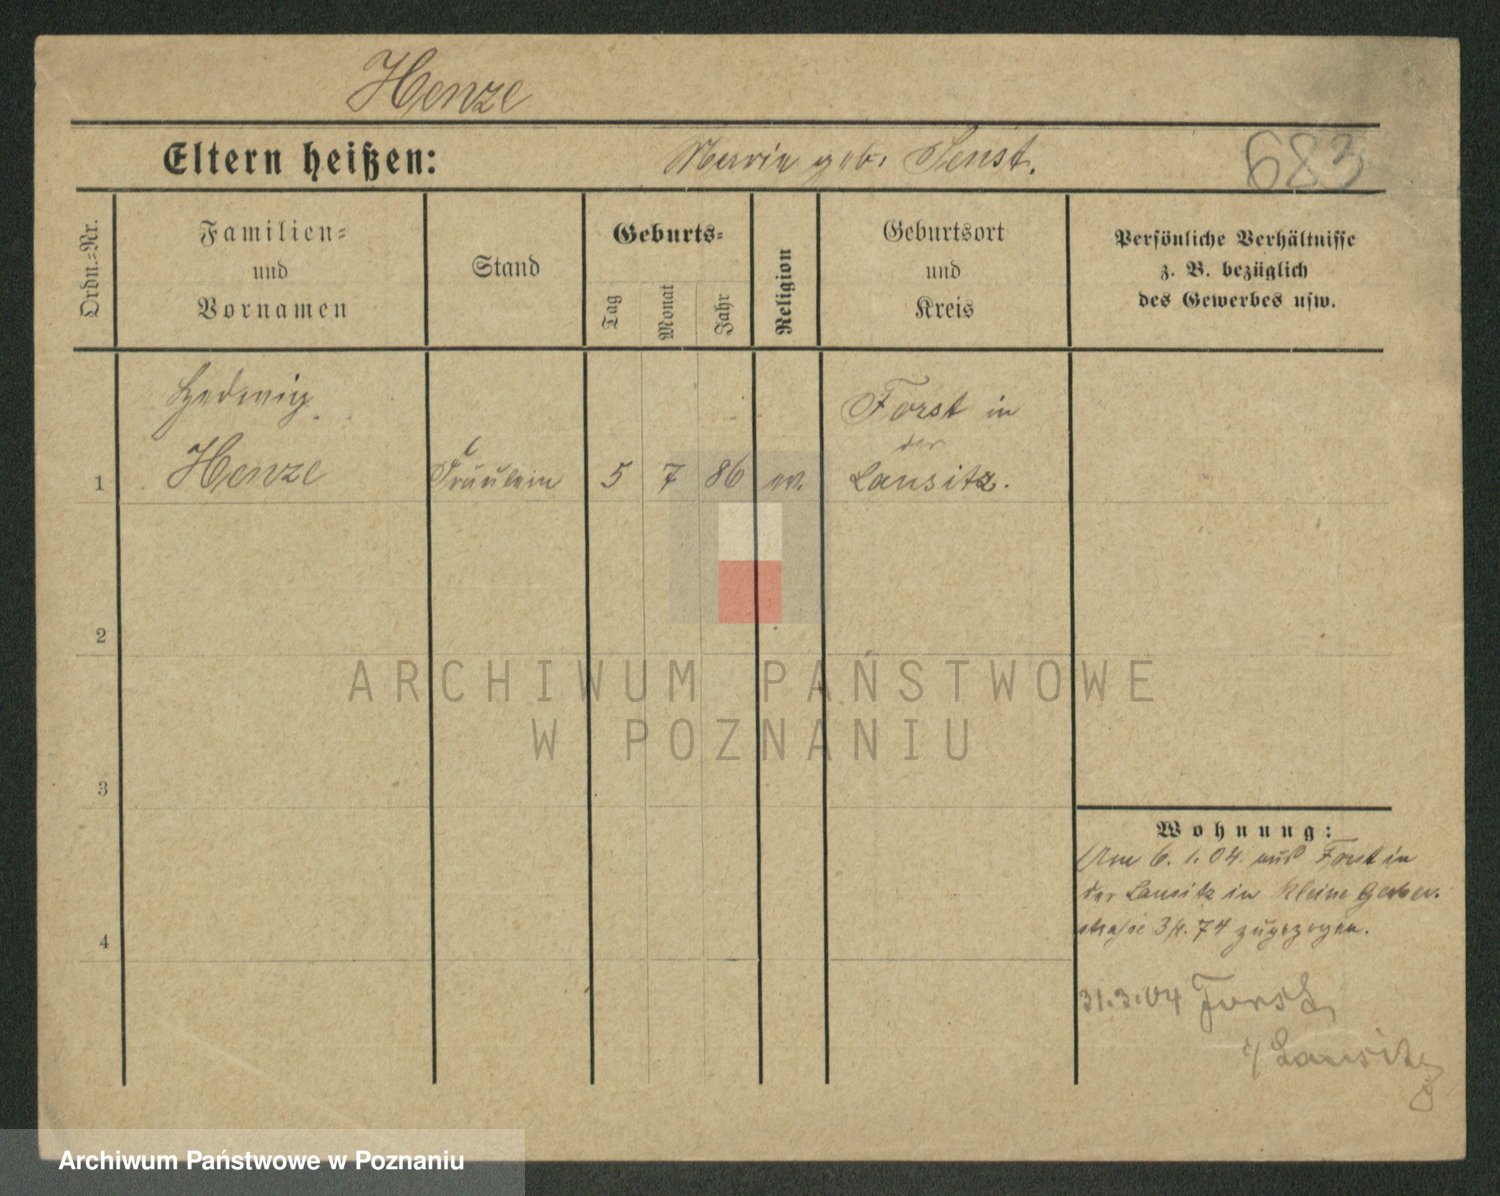 Henze
Eltern heißen:
geb.
683
Ordn.-Nr.
Familien-
und
Vornamen
Stand
Geburts-
Tag
Monat
Jahr
Religion
Geburtsort
und
Kreis
Persönliche Verhältnisse
z. B. bezüglich
des Gewerbes usw.
1
Hedwig
Henze
Fräulein
5
7
86
ev.
Forst in
der
Lausitz.
2
3
4
Wohnung:
Am 6. 1. 04. aus Forst in
der Lausitz in Kleine Gerber-
straße 74 zugezogen.
31.3.04 Forst
i/ Lausitz
ARCHIWUM PAŃSTWOWE
W POZNANIU
Archiwum Państwowe w Poznaniu